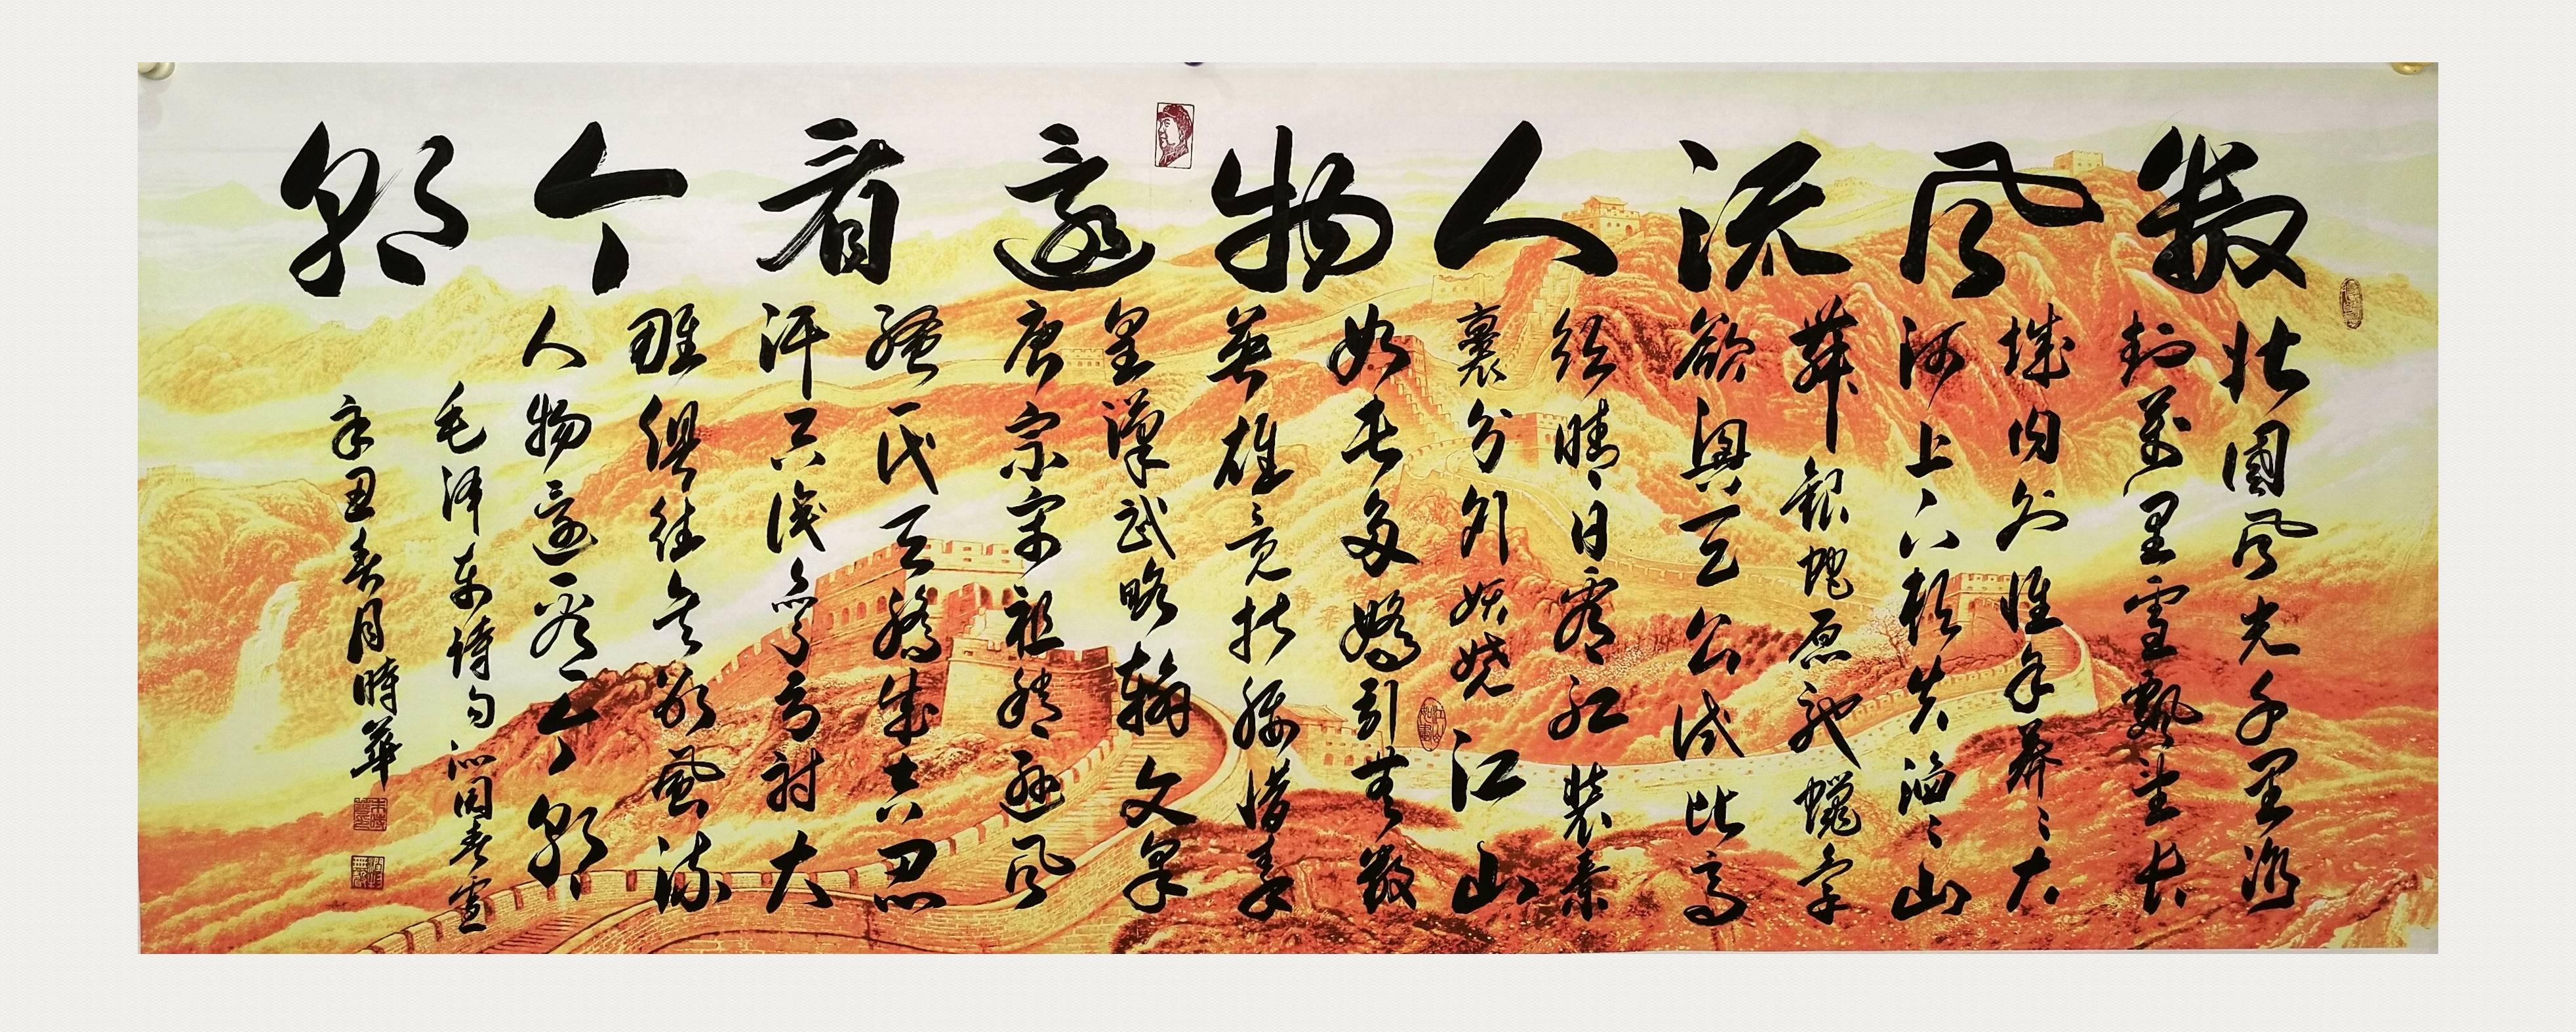 数风流人物還看今朝
北國风光千里冰
封萬里雪飄望长
城内外惟余莽莽大
河上下顿失滔滔山
舞銀蛇原驰蠟象
欲與天公试比高
须晴日看红装素
裹分外妖娆江山
如此多嬌引無數
英雄竞折腰惜秦
皇漢武略输文采
唐宗宋祖稍逊风
骚一代天骄成吉思
汗只識彎弓射大
雕俱往矣数風流
人物還看今朝
毛泽东诗句沁园春雪
辛丑春月時華